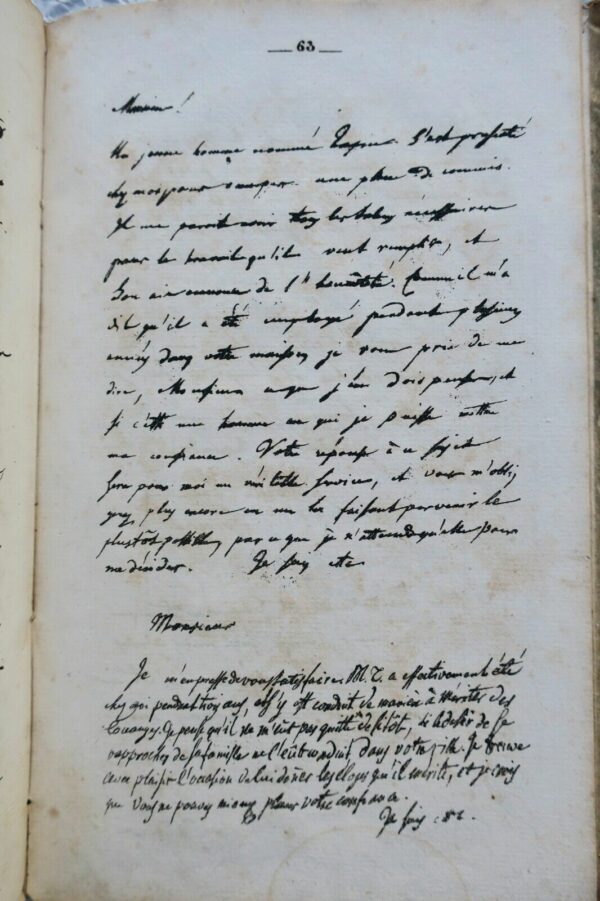 — 63 —
Monsieur!
Un jeune homme nommé Tapin s'est présenté
chez moi pour occuper une place de commis.
Il me paroit avoir tous les talens nécessaires
pour le travail qu'il veut remplir, et
Son air annonce de l'honnêteté. Comme il m'a
dit qu'il a été employé pendant plusieurs
années dans votre maison, je vous prie de me
dire, Monsieur ce que j'en dois penser, et
Si c'est un homme en qui je puisse mettre
ma confiance. Votre réponse à ce Sujet
Sera pour moi un véritable Service, et vous m'obli,
gez plus encore en me la faisant parvenir le
plustôt possible, parce que je n'attends qu'elle pour
me décider. Je suis etc
Monsieur
Je m'empresse de vous satisfaire. M. T. a effectivement été
chez moi pendant trois ans, et s'y est conduit de manière à mériter des
louanges. Je pense qu'il ne m'eut pas quitté de sitôt, si le desir de se
rapprocher de sa famille ne l'eût conduit dans votre ville. Je trouve
avec plaisir l'occasion de lui donner les éloges qu'il mérite, et je crois
que vous ne pouvez mieux placer votre confiance.
Je suis &c.